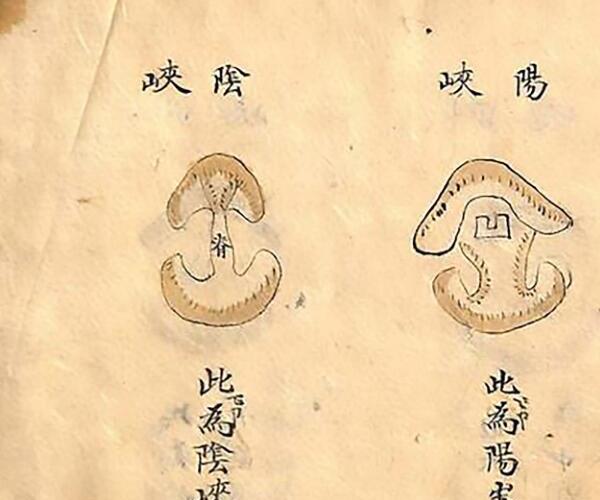 陽峽
凹
此為陽
陰峽
脊
此為陰峽